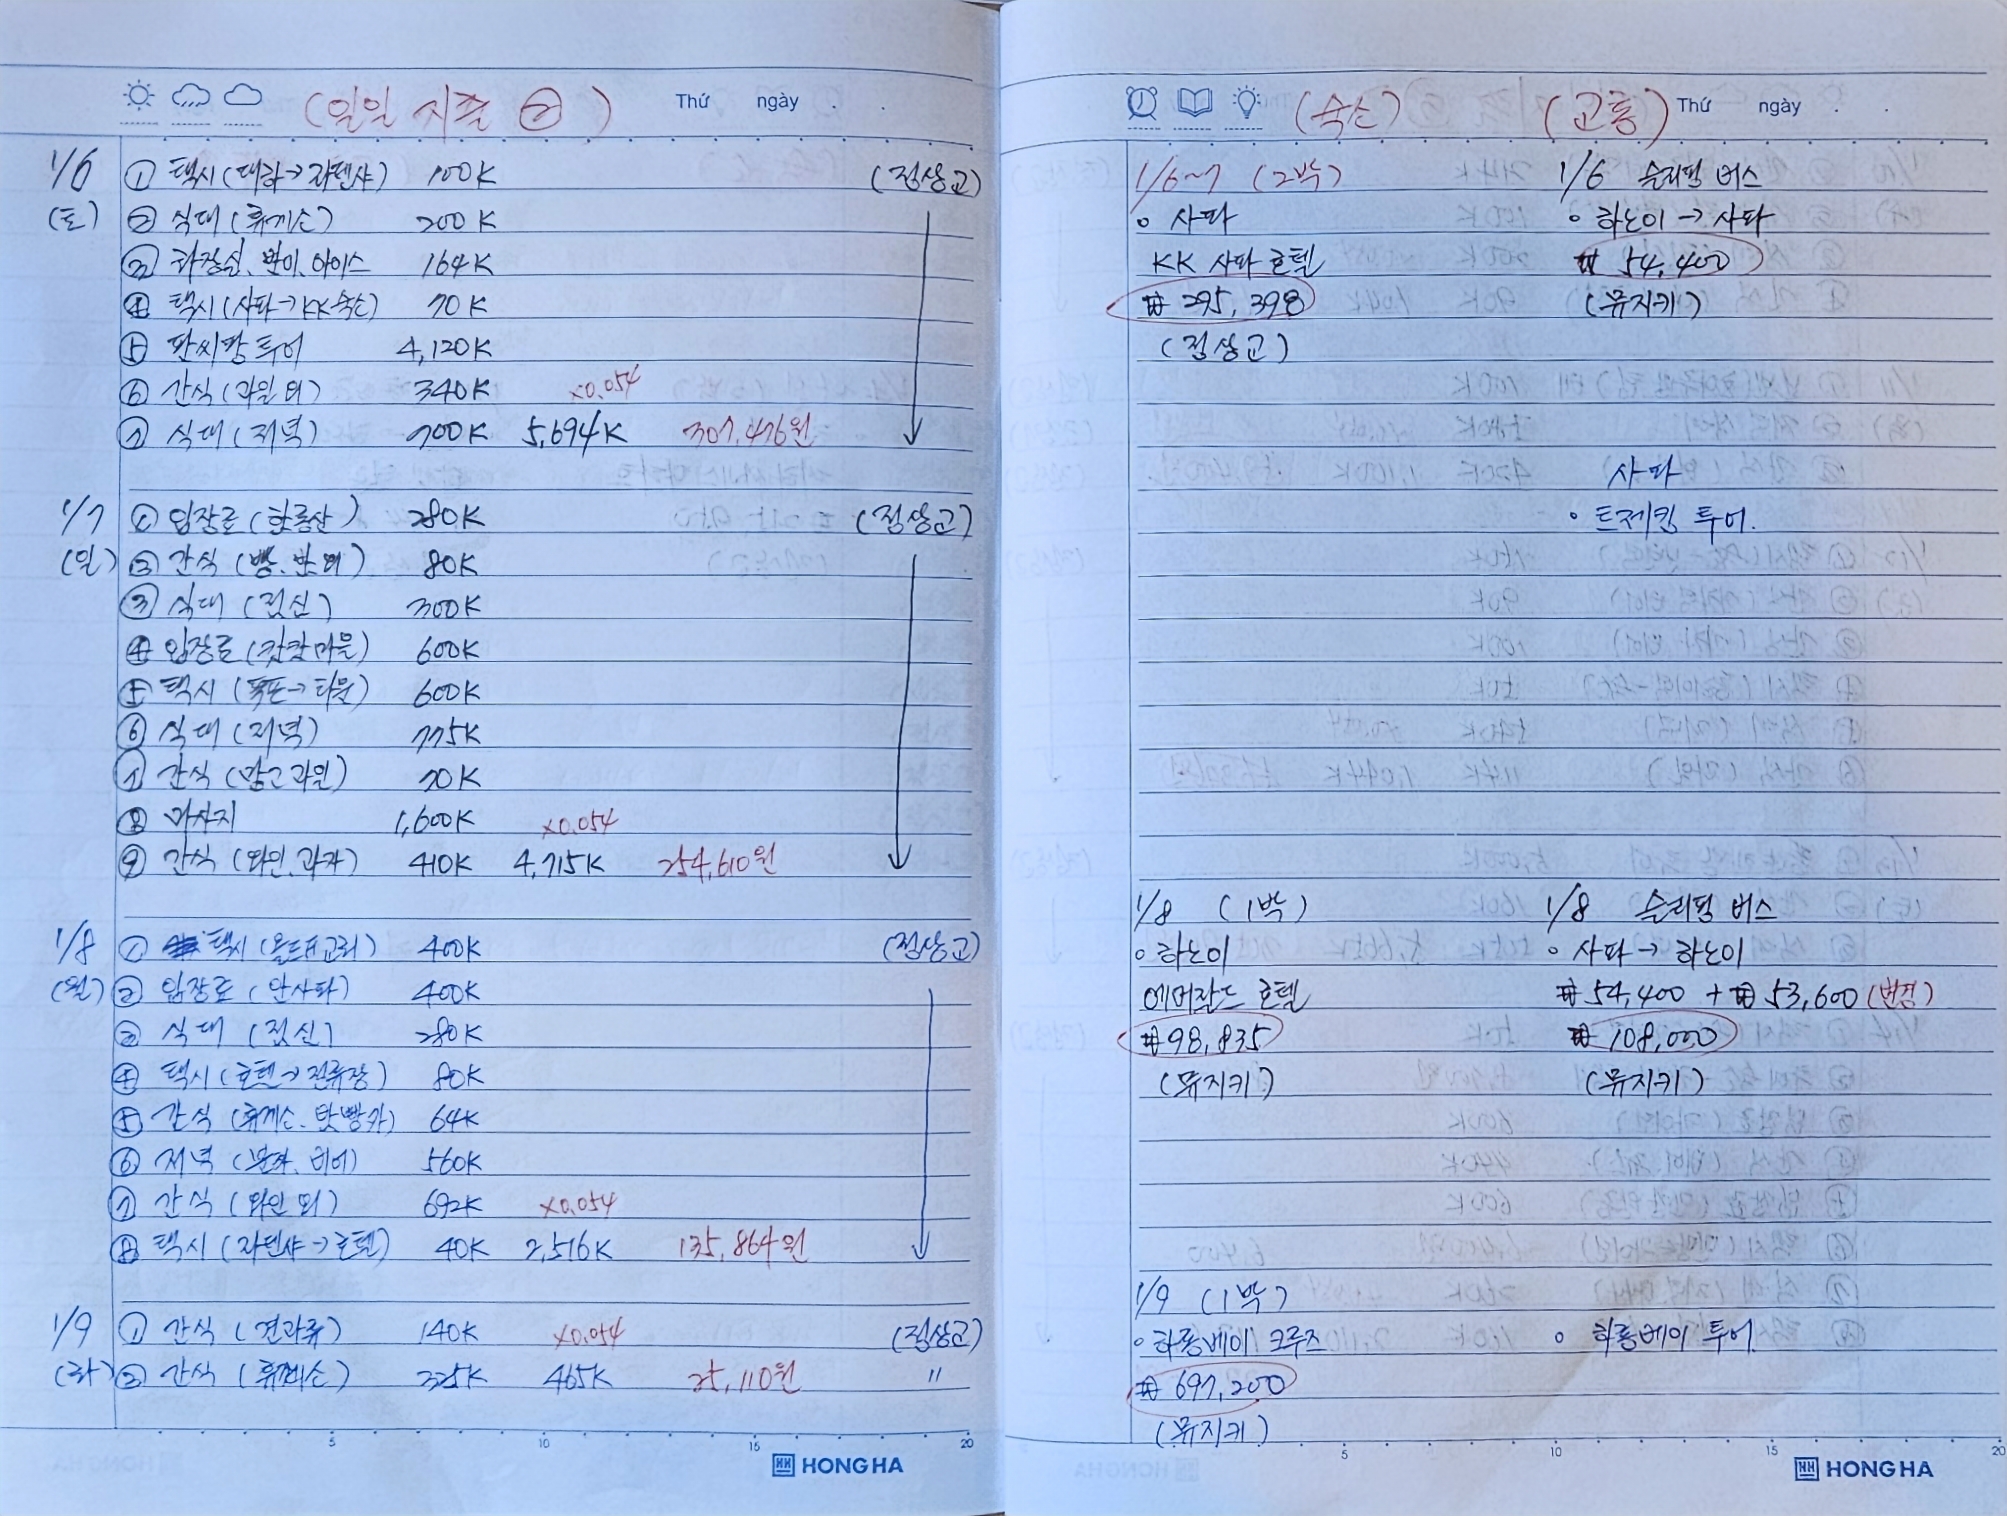 (일일 지출 ②) Thứ ngày . .
1/6 ① 택시 (대감→라텐샤) 100K (정상교)
(토) ② 식대 (휴게소) 200K
③ 화장실, 반미, 아이스 164K
④ 택시 (사파→KK숙소) 70K
⑤ 판씨팡 투어 4,120K
⑥ 간식 (과일 외) 340K ×0.054
⑦ 식대 (저녁) 700K 5,694K 307,476원
1/7 ① 입장료 (함롱산) 280K (정상교)
(일) ② 간식 (빵, 반미) 80K
③ 식대 (점심) 300K
④ 입장료 (깟깟마을) 600K
⑤ 택시 (폭포→타운) 600K
⑥ 식대 (저녁) 775K
⑦ 간식 (망고 과일) 70K
⑧ 마사지 1,600K ×0.054
⑨ 간식 (와인, 과자) 410K 4,715K 254,610원
1/8 ① 택시 (유리다리) 400K (정상교)
(월) ② 입장료 400K
③ 식대 (점심) 280K
④ 택시 (호텔→정류장) 80K
⑤ 간식 (휴게소) 64K
⑥ 저녁 (분짜, 비어) 560K
⑦ 간식 (와인 외) 692K ×0.054
⑧ 택시 (라텐샤→호텔) 40K 2,516K 135,864원
1/9 ① 간식 (견과류) 140K ×0.054 (정상교)
(화) ② 간식 (휴게소) 325K 465K 25,110원 〃
5 10 15 20
HONG HA
(숙소) (교통) Thứ ngày . .
1/6~7 (2박) 1/6 슬리핑 버스
○ 사파 ○ 하노이 → 사파
KK 사파 호텔 ₩ 54,400
₩ 295,398 (뮤지키)
(정상교)
사파
○ 트레킹 투어.
1/8 (1박) 1/8 슬리핑 버스
○ 하노이 ○ 사파 → 하노이
에머랄드 호텔 ₩ 54,400 + ₩ 53,600 (변경)
₩98,835 ₩ 108,000
(뮤지키) (뮤지키)
1/9 (1박)
○ 하롱베이 크루즈 ○ 하롱베이 투어
₩ 697,200
(뮤지키)
5 10 15 20
HONG HA